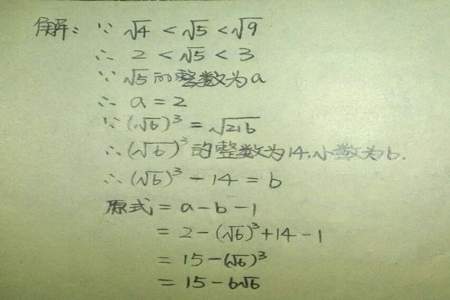 解：∵ √4 < √5 < √9
∴ 2 < √5 < 3
∵ √5的整数为a
∴ a = 2
∵ (√6)³ = √216
∴ (√6)³的整数为14,小数为b.
∴ (√6)³ - 14 = b
原式 = a - b - 1
= 2 - (√6)³ + 14 - 1
= 15 - (√6)³
= 15 - 6√6